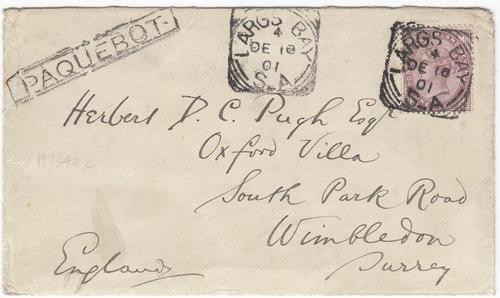 PAQUEBOT.
LARGS BAY
4
DE 18
01
S.A
LARGS BAY
4
DE 18
01
S.A
Herbert D. C. Pugh Esqr
Oxford Villa
South Park Road
Wimbledon
Surrey
England